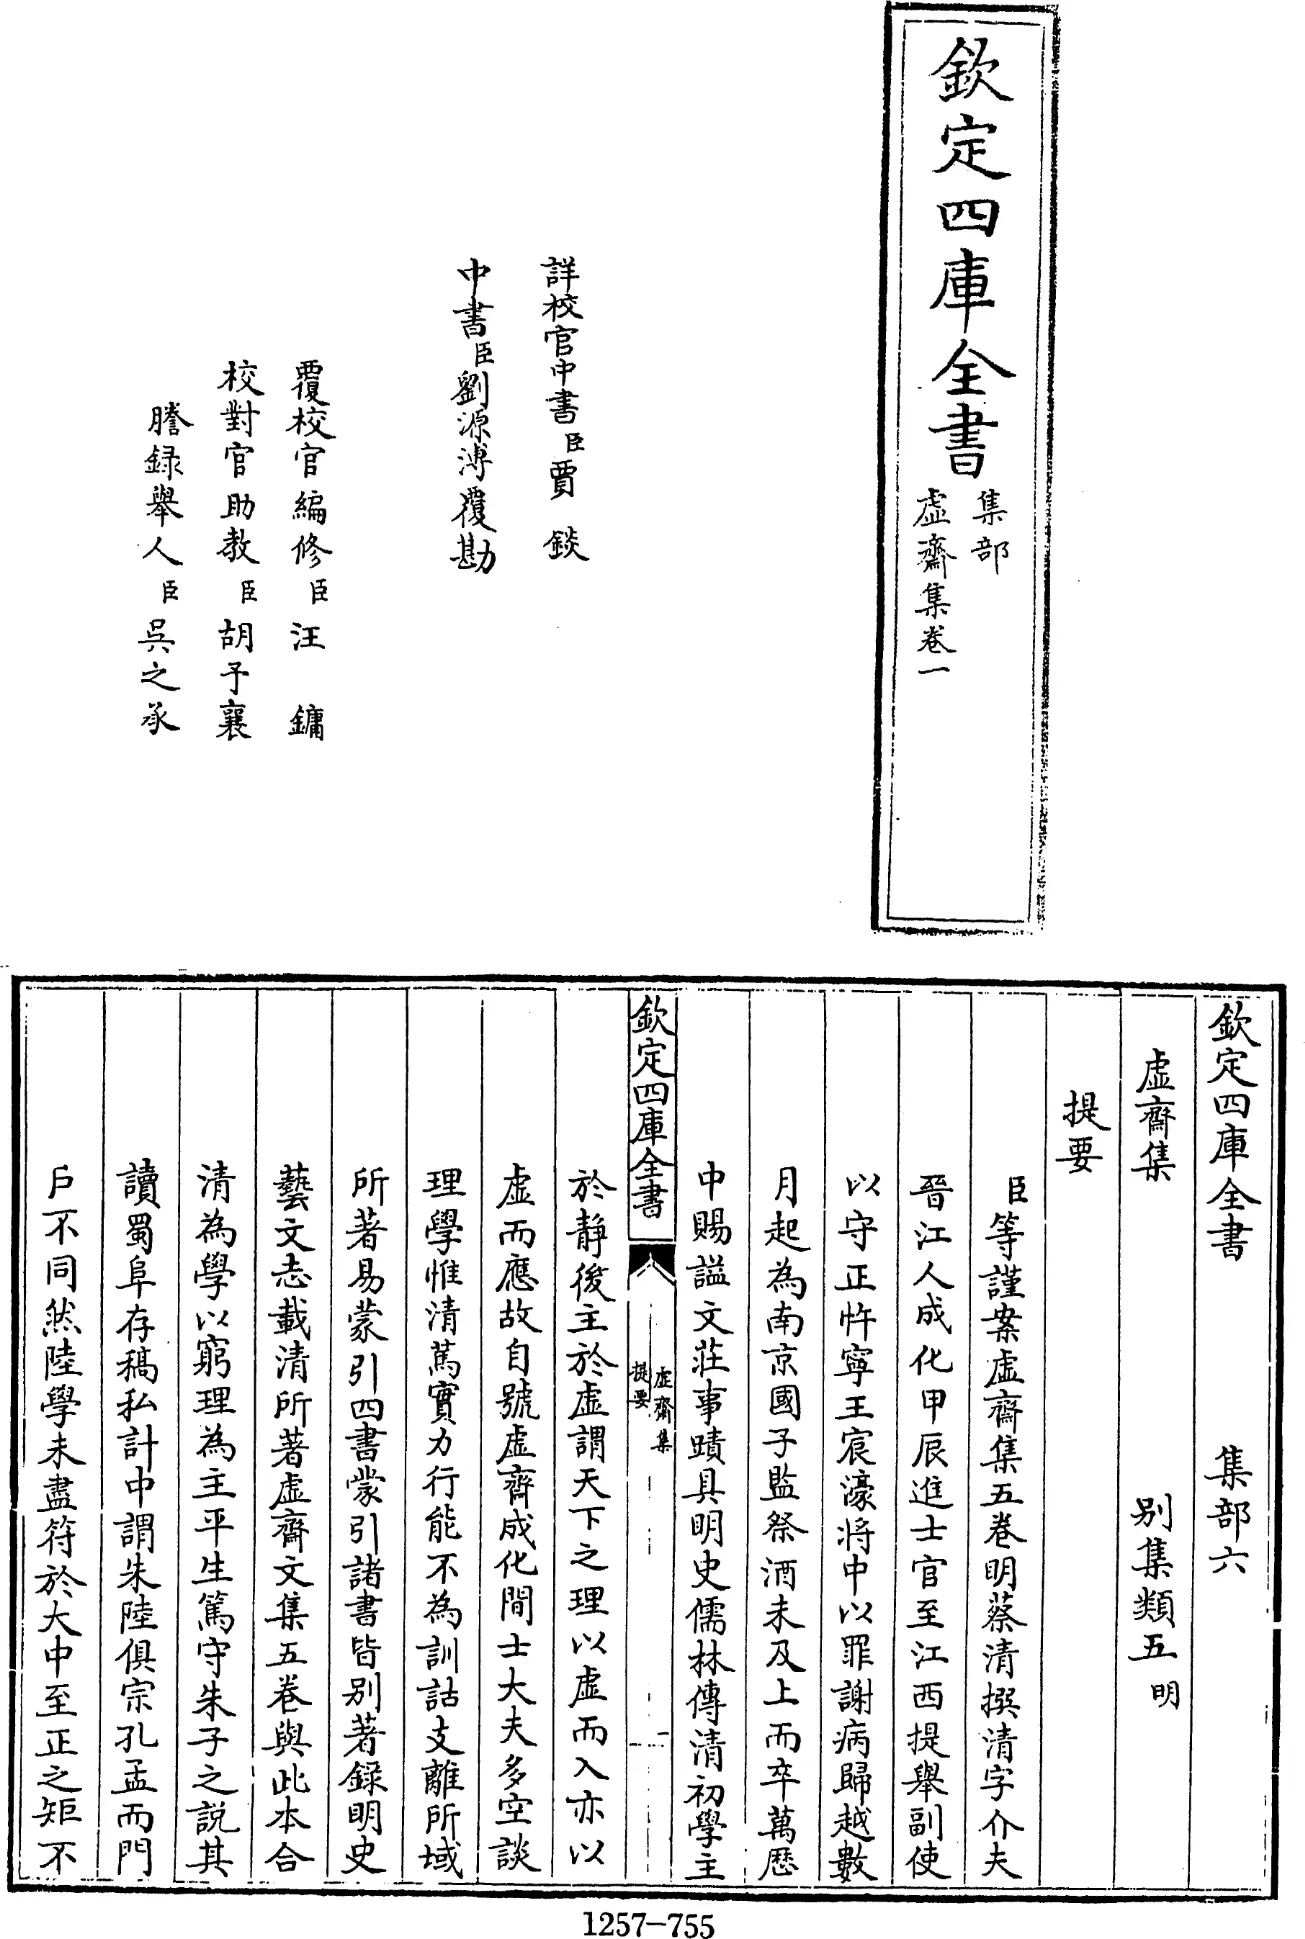 欽定四庫全書
集部
虛齋集卷一
詳校官中書臣賈錟
中書臣劉源溥覆勘
覆校官編修臣汪鏞
校對官助教臣胡予襄
謄録舉人臣吳之承
欽定四庫全書 集部六
虛齋集 别集類五明
提要
臣等謹案虛齋集五卷明蔡清撰清字介夫
晉江人成化甲辰進士官至江西提舉副使
以守正忤寧王宸濠將中以罪謝病歸越數
月起為南京國子監祭酒未及上而卒萬歷
中賜謚文莊事蹟具明史儒林傳清初學主
欽定四庫全書
虛齋集
提要
一
於靜後主於虛謂天下之理以虛而入亦以
虛而應故自號虛齋成化間士大夫多空談
理學惟清篤實力行能不為訓詁支離所域
所著易蒙引四書蒙引諸書皆别著録明史
藝文志載清所著虛齋文集五卷與此本合
清為學以窮理為主平生篤守朱子之說其
讀蜀阜存稿私計中謂朱陸俱宗孔孟而門
户不同然陸學未盡符於大中至正之矩不
1257-755